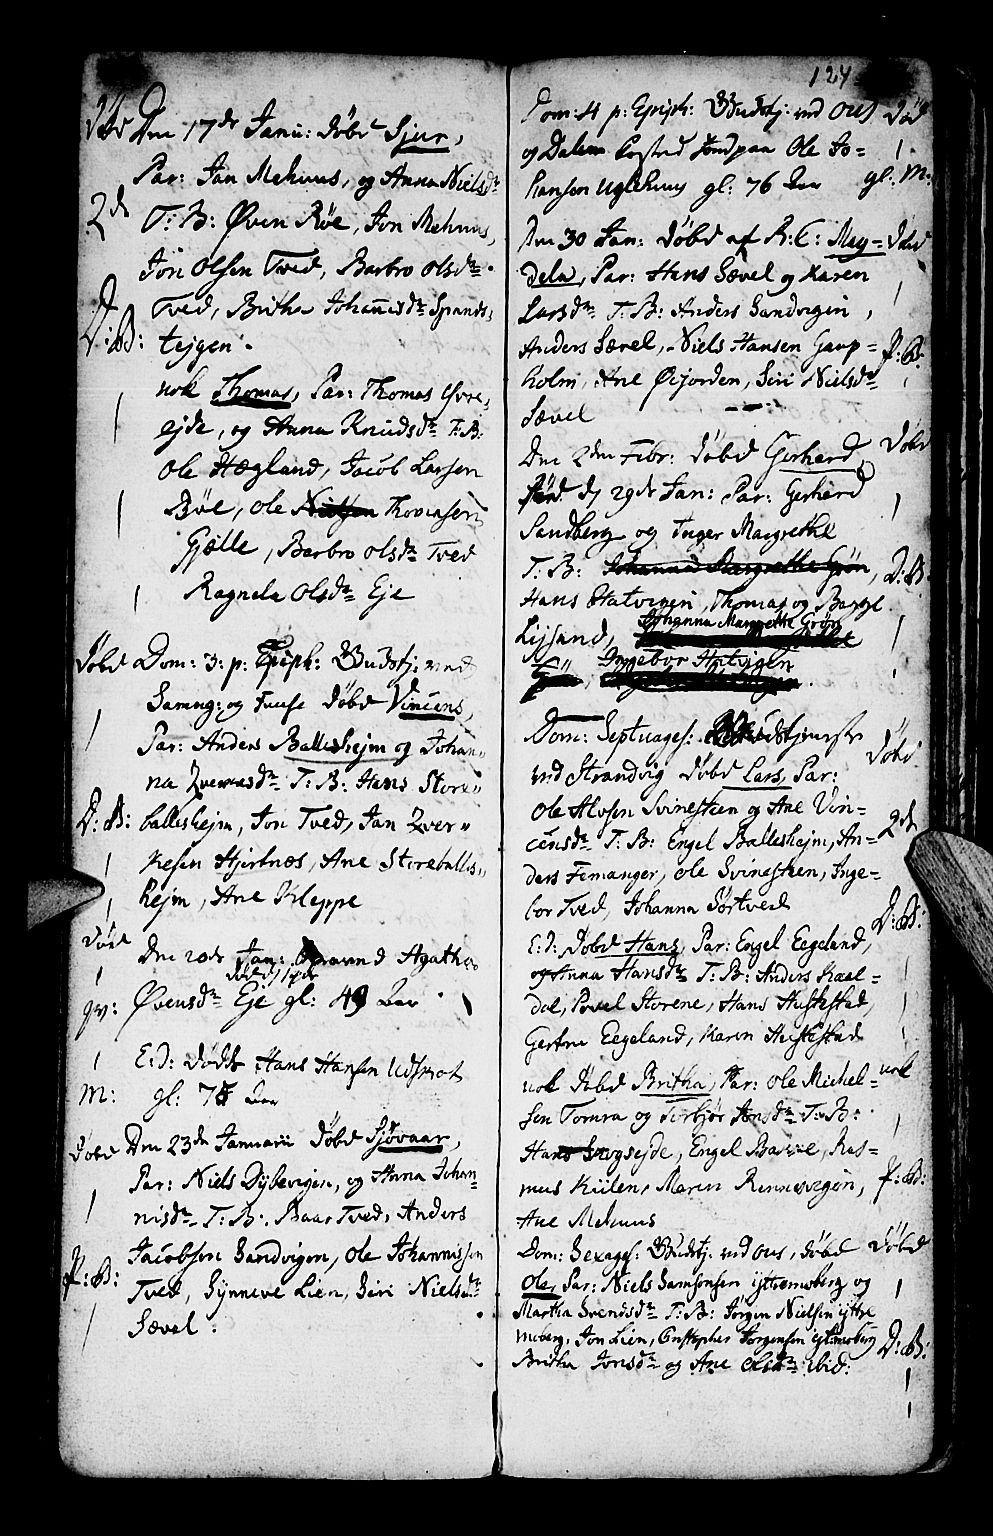 Døbd Den 17de Janu: døbd Sjur,
Par: Jan Mehuus, og Anna Nielsdr
2de T: B: Øven Røe, Jon Mehuus,
Jon Olsen Tved, Barbro Olsdr
D: B: Tved, Britha Johannisdr Spands,
tejgen.
nok Thomas, Par: Thomas Øvre,
ejde, og Anna Knudsdr T: B:
Ole Hægland, Jacob Larsen
Bøe, Ole Thorensen
Gjælle, Barbro Olsdr Tved
Ragnela Olsdr Eje
Døbd Dom: 3: p: Epiph: Gudstj: ved
Samng: og Fuuse døbd Vincens,
Par: Anders Ballesheim og Johan„
na Zverrisdr T: B: Hans Store„
D: B: ballesheim, Jon Tved, Jan Zver„
resen Hjertnes, Ane Storeballes„
hejm, Ane Kleppe
Død Den 20de Jan: Agatha
død d 17de
qv: Øvensdr Eje gl: 49 Aar
E: D: døde Hans Hansen Udsmot
M: gl: 75 Aar
Døbd Den 23de Januarii døbd Sjøvaar,
Par: Niels Dybevigen, og Anna Johan„
nisdr T: B: Baar Tved, Anders
Jacobsen Sandvigen, Ole Johannissen
P: B: Tved, Synneve Lien, Siri Nielsdr
Sævel.
124
Dom: 4 p: Epiph: Gudstj: ved Ous Død
og Dalen Jordpaa Ole Jo=
hansen Uglehuus gl: 76 Aar gl: M:
Den 30 Jan: døbd af R: C: Mag= Døbd
dela, Par: Hans Sævel og Karen
Larsdr T: B: Anders Sandvigen,
Anders Sævel, Niels Hansen Gaup= P: B:
holm, Ane Øejorden, Siri Nielsdr
Sævel
Den 2den Febr: døbd Gerherd, Døbd
født d 29de Jan: Par: Gerherd
Sandberg og Inger Margrethe
T: B: Johanna Margrethe Grøn, D: B:
Hans Hatvigen, Thomas og Baggl
Lijsand, Johanna Margrethe Grøn
Ingebor Hatvigen.
Dom: Septuages: Gudstjeneste Døbd
ved Strandvig døbd Lars, Par:
Ole Alvsen Svinesteen og Ane Vin= 2de
censdr T: B: Engel Ballesheim, An=
ders Femanger, Ole Svinesteen, Inge=
bor Tved, Johanna Sørtved D: B:
E: D: Døbd Hans, Par: Engel Eegeland,
og Anna Hansdr T: B: Anders Kaal=
dal, Povel Storene, Hans Hustestad,
Gertru Eegeland, Karen Hustestad
nok døbd Britha, Par: Ole Michel= nok
sen Tomra og Torbjør Jonsdr T: B:
Hans Skogsejde, Engel Barve, Ras=
mus Kiilen, Maren Rennesvigen, P: B:
Ane Mehuus
Dom: Sexages: Gudstj: ved Ous, døbd Døbd
Ole, Par: Niels Samsonsen Yttremoberg og
Martha Svendsdr T: B: Jørgen Nielsen Yttre
moberg, Jon Lien, Christopher Jørgensen Yttremoberg D: B:
Britha Jonsdr og Ane Olsdr ibid: